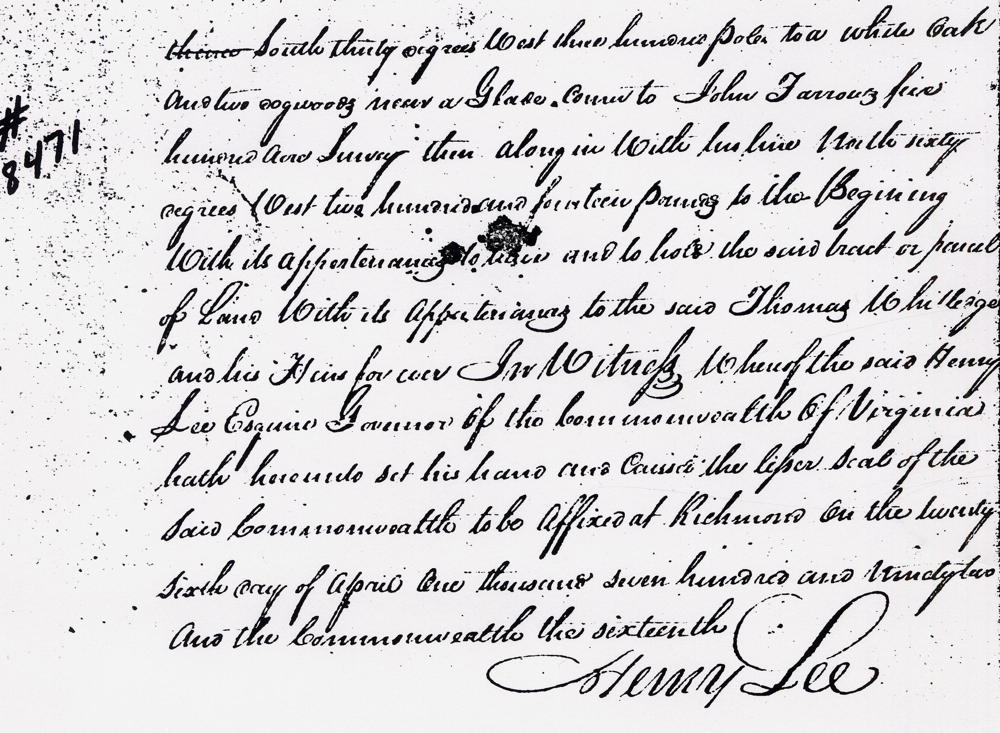 thence South thirty degrees West three hundred poles to a white Oak
and two dogwoods near a Glade. Corner to John Farrows five
# 8471
hundred Acre Survey then along in With his line North sixty
degrees West two hundred and fourteen pounds to the Begining
With its Appertenances to have and to hold the said tract or parcel
of Land With its Appertenances to the said Thomas Whitledge
and his Heirs for ever In Witness Whereof the said Henry
Lee Esquire Governor Of the Commonwealth Of Virginia
hath hereunto set his hand and Caused the lesser Seal of the
Said Commonwealth to be Affixed at Richmond On the twenty
sixth day of April One thousand seven hundred and Ninety two
And the Commonwealth the sixteenth
Henry Lee